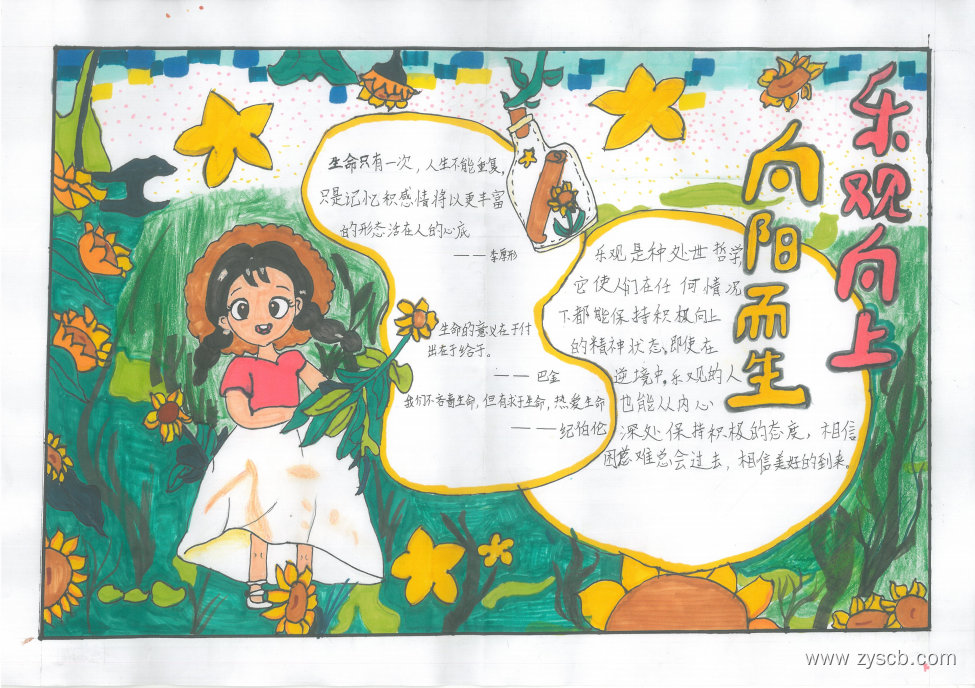 乐观向上
向阳而生
生命只有一次，人生不能重复，
只是记忆积感情得以更丰富
的形态活在人的心底
——李厚形
生命的意义在于付
出在于给予。
——巴金
我们不吝啬生命，但有求于生命，热爱生命
——纪伯伦
乐观是种处世哲学，
它使人们在任何情况
下都能保持积极向上
的精神状态。即使在
逆境中。乐观的人
也能从内心
深处保持积极的态度，相信
困难总会过去，相信美好的到来。
www.zyscb.com